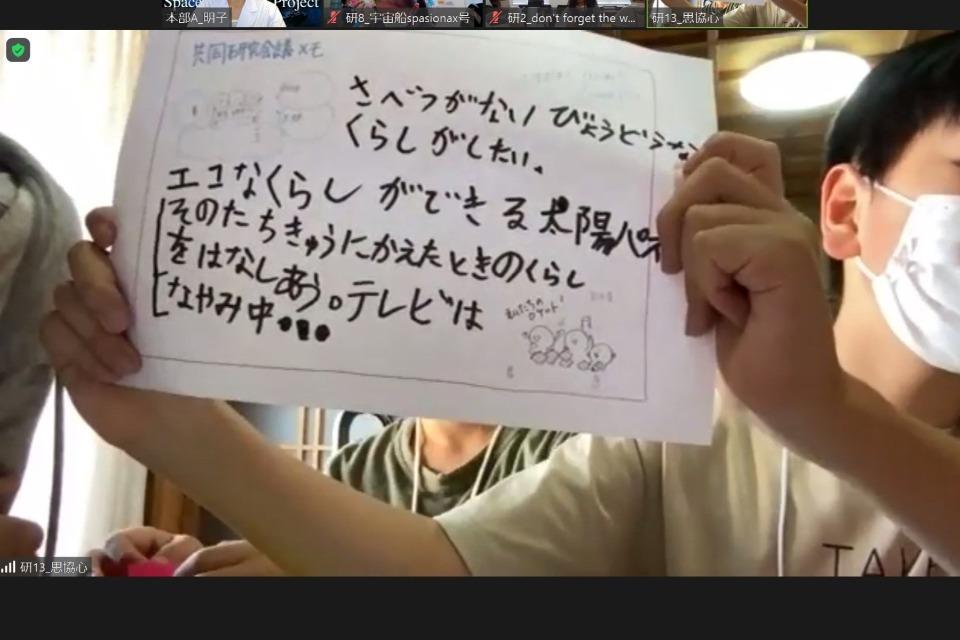 Space
Project
本部A_明子
研8_宇宙船spasionax号
研2_don't forget the w...
研13_思協心
共同研究会議メモ
さべつがない びょうどうな
くらしがしたい。
エコなくらし ができる太陽パネ
そのたちきゅうにかえたときのくらし
をはなしあう。テレビは
なやみ中・・・
わたしたちの
ロケット!
TAKE
研13_思協心